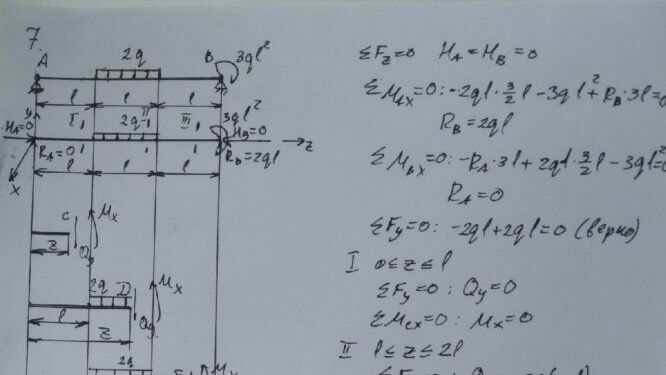 7.
2q
A B 3ql²
l l l
y 3ql²
H_A=0 I 2q II III H_B=0 z
x R_A=0 R_B=2ql
l l l
C M_x
z Q_y
2q D M_x
l Q_y
z
2q
M_x
ΣF_z=0 H_A=H_B=0
ΣM_Ax=0: -2ql·3/2l-3ql²+R_B·3l=0
R_B=2ql
ΣM_Bx=0: -R_A·3l+2ql·3/2l-3ql²=0
R_A=0
ΣF_y=0: -2ql+2ql=0 (верно)
I 0≤z≤l
ΣF_y=0: Q_y=0
ΣM_Cx=0: M_x=0
II l≤z≤2l